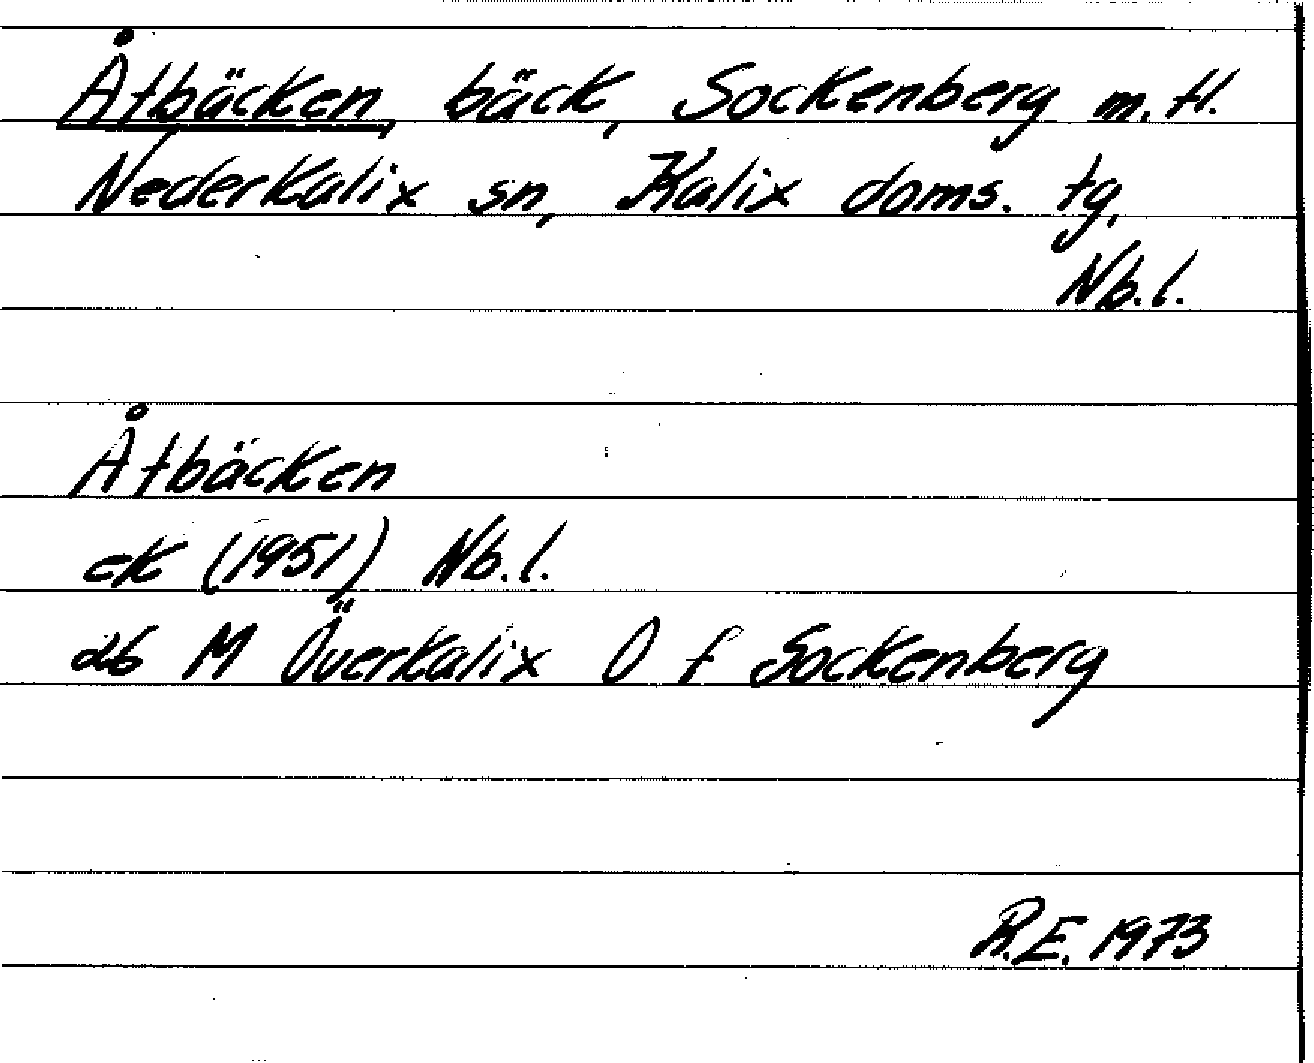 Åtbäcken, bäck, Sockenberg m. fl.
Nederkalix sn, Kalix doms. tg,
Nb. l.
Åtbäcken
ek (1951) Nb. l.
db M Överkalix O f Sockenberg
R.E. 1973